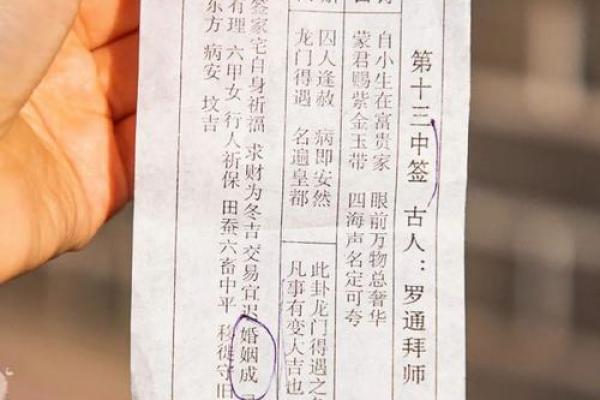 第十三中签 古人：罗通拜师
自小生在富贵家 眼前万物总奢华
蒙君赐紫金玉带 四海声名定可夸
囚人逢赦 病即安然
龙门得遇 名遍皇都
此卦龙门得遇之
凡事有变大吉也
签家宅自身祈福 求财为冬吉 交易宜迟 婚姻成
有理 六甲女 行人祈保 田蚕六畜中平 移徙守旧
东方 病安 坟吉